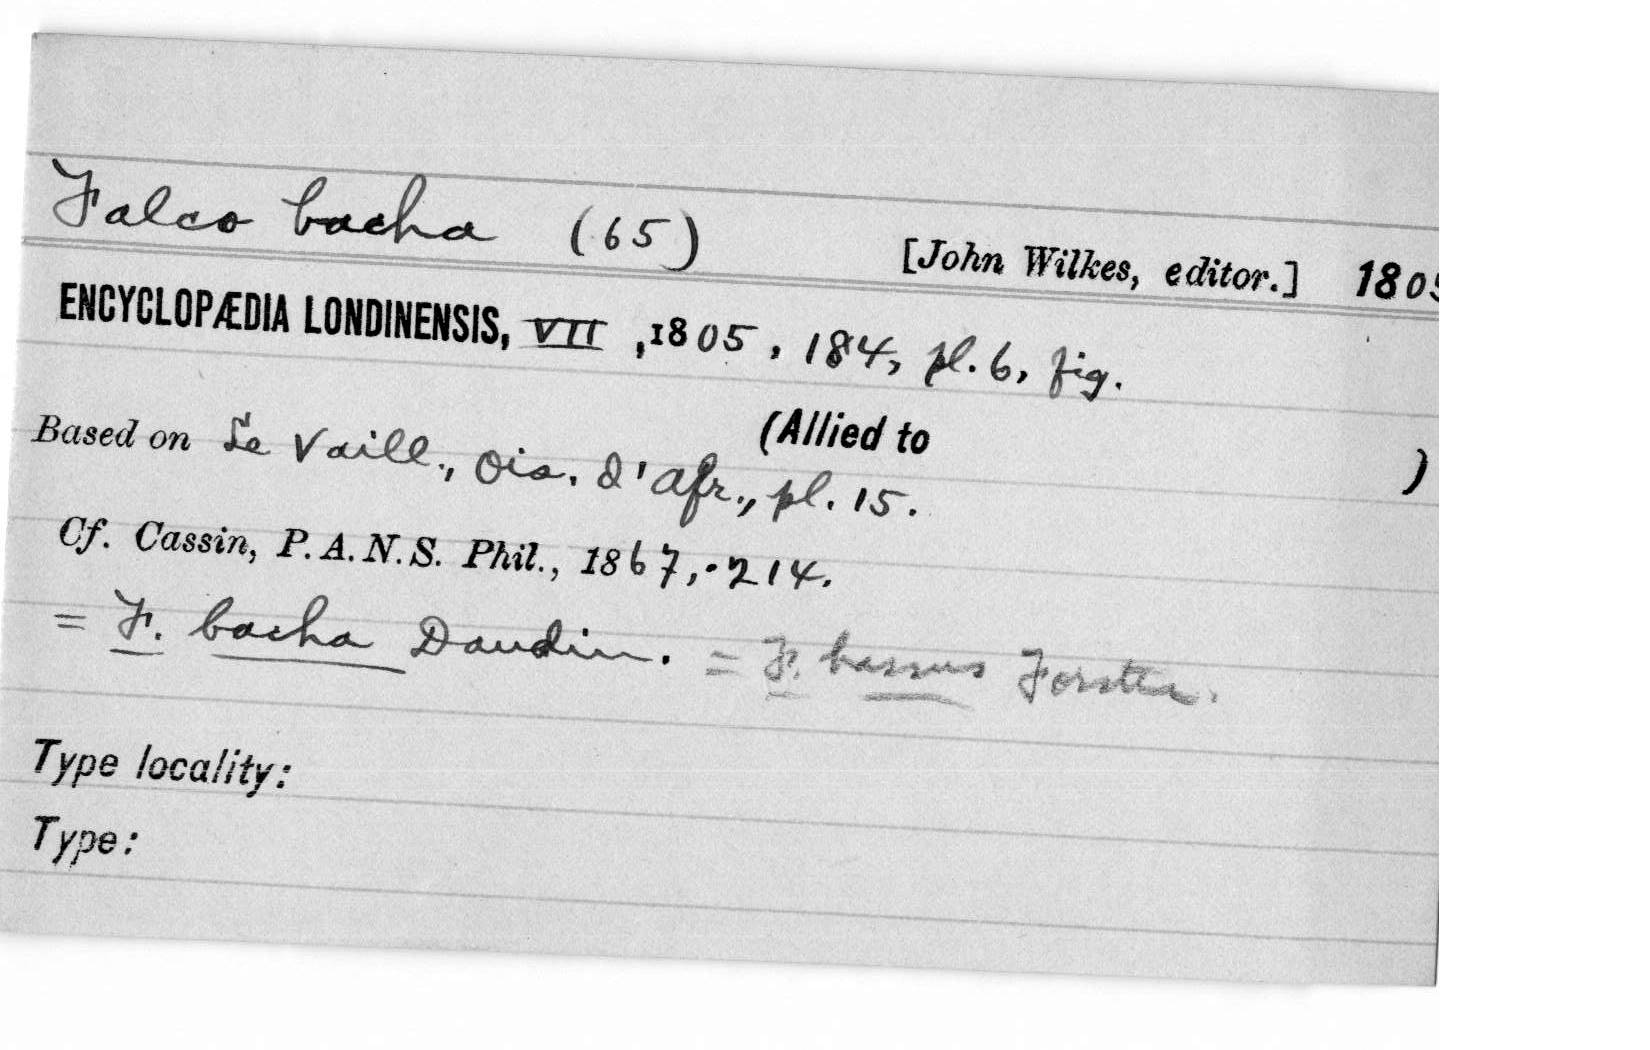 Falco bacha (65) [John Wilkes, editor.] 1805
ENCYCLOPÆDIA LONDINENSIS, VII, 1805, 184, pl. 6, fig.
(Allied to )
Based on Le Vaill., Ois. d'Afr., pl. 15.
Cf. Cassin, P. A. N. S. Phil., 1867, 214.
= F. bacha Daudin. = F. bassus Forster.
Type locality:
Type: